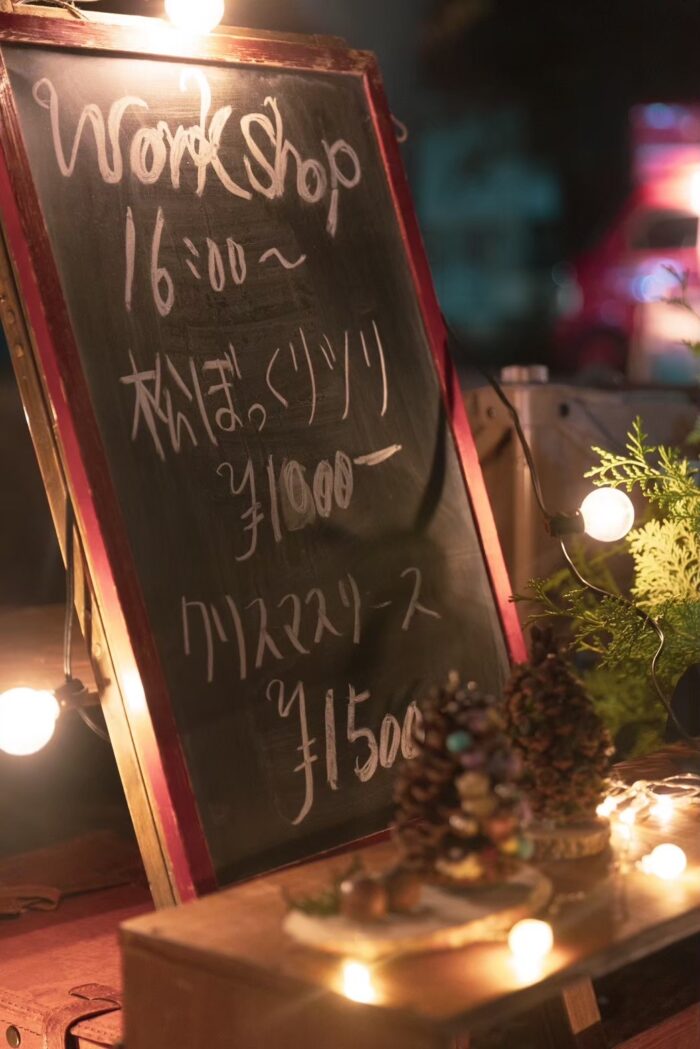 Workshop
16:00~
松ぼっくりツリー
¥1000ー
クリスマスリース
¥1500